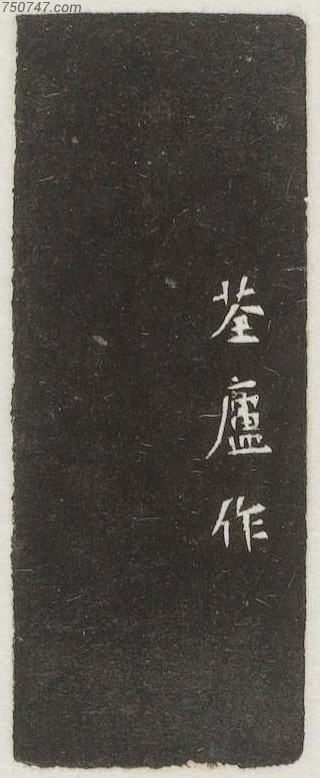 750747.com
荃廬作